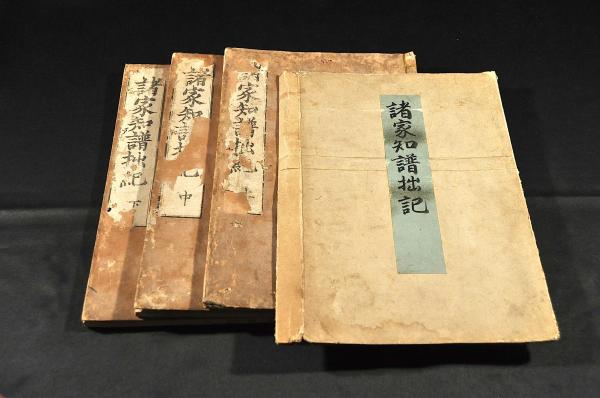 諸家知譜拙記
諸家知譜拙記 上
諸家知譜拙記 中
諸家知譜拙記 下